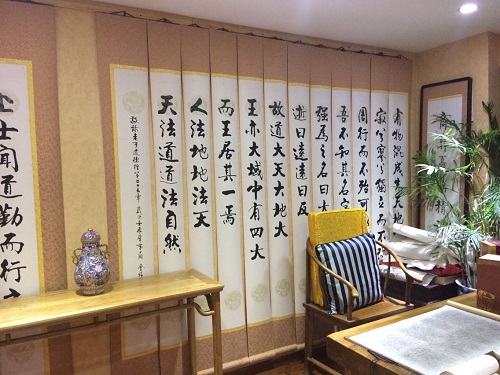 有物混成先天地
寂兮寥兮獨立而不
周行而不殆可
吾不知其名字
强為之名曰大
逝曰遠遠曰反
故道大天大地大
王亦大域中有四大
而王居其一焉
人法地地法天
天法道道法自然
老子道德經
士聞道勤而行